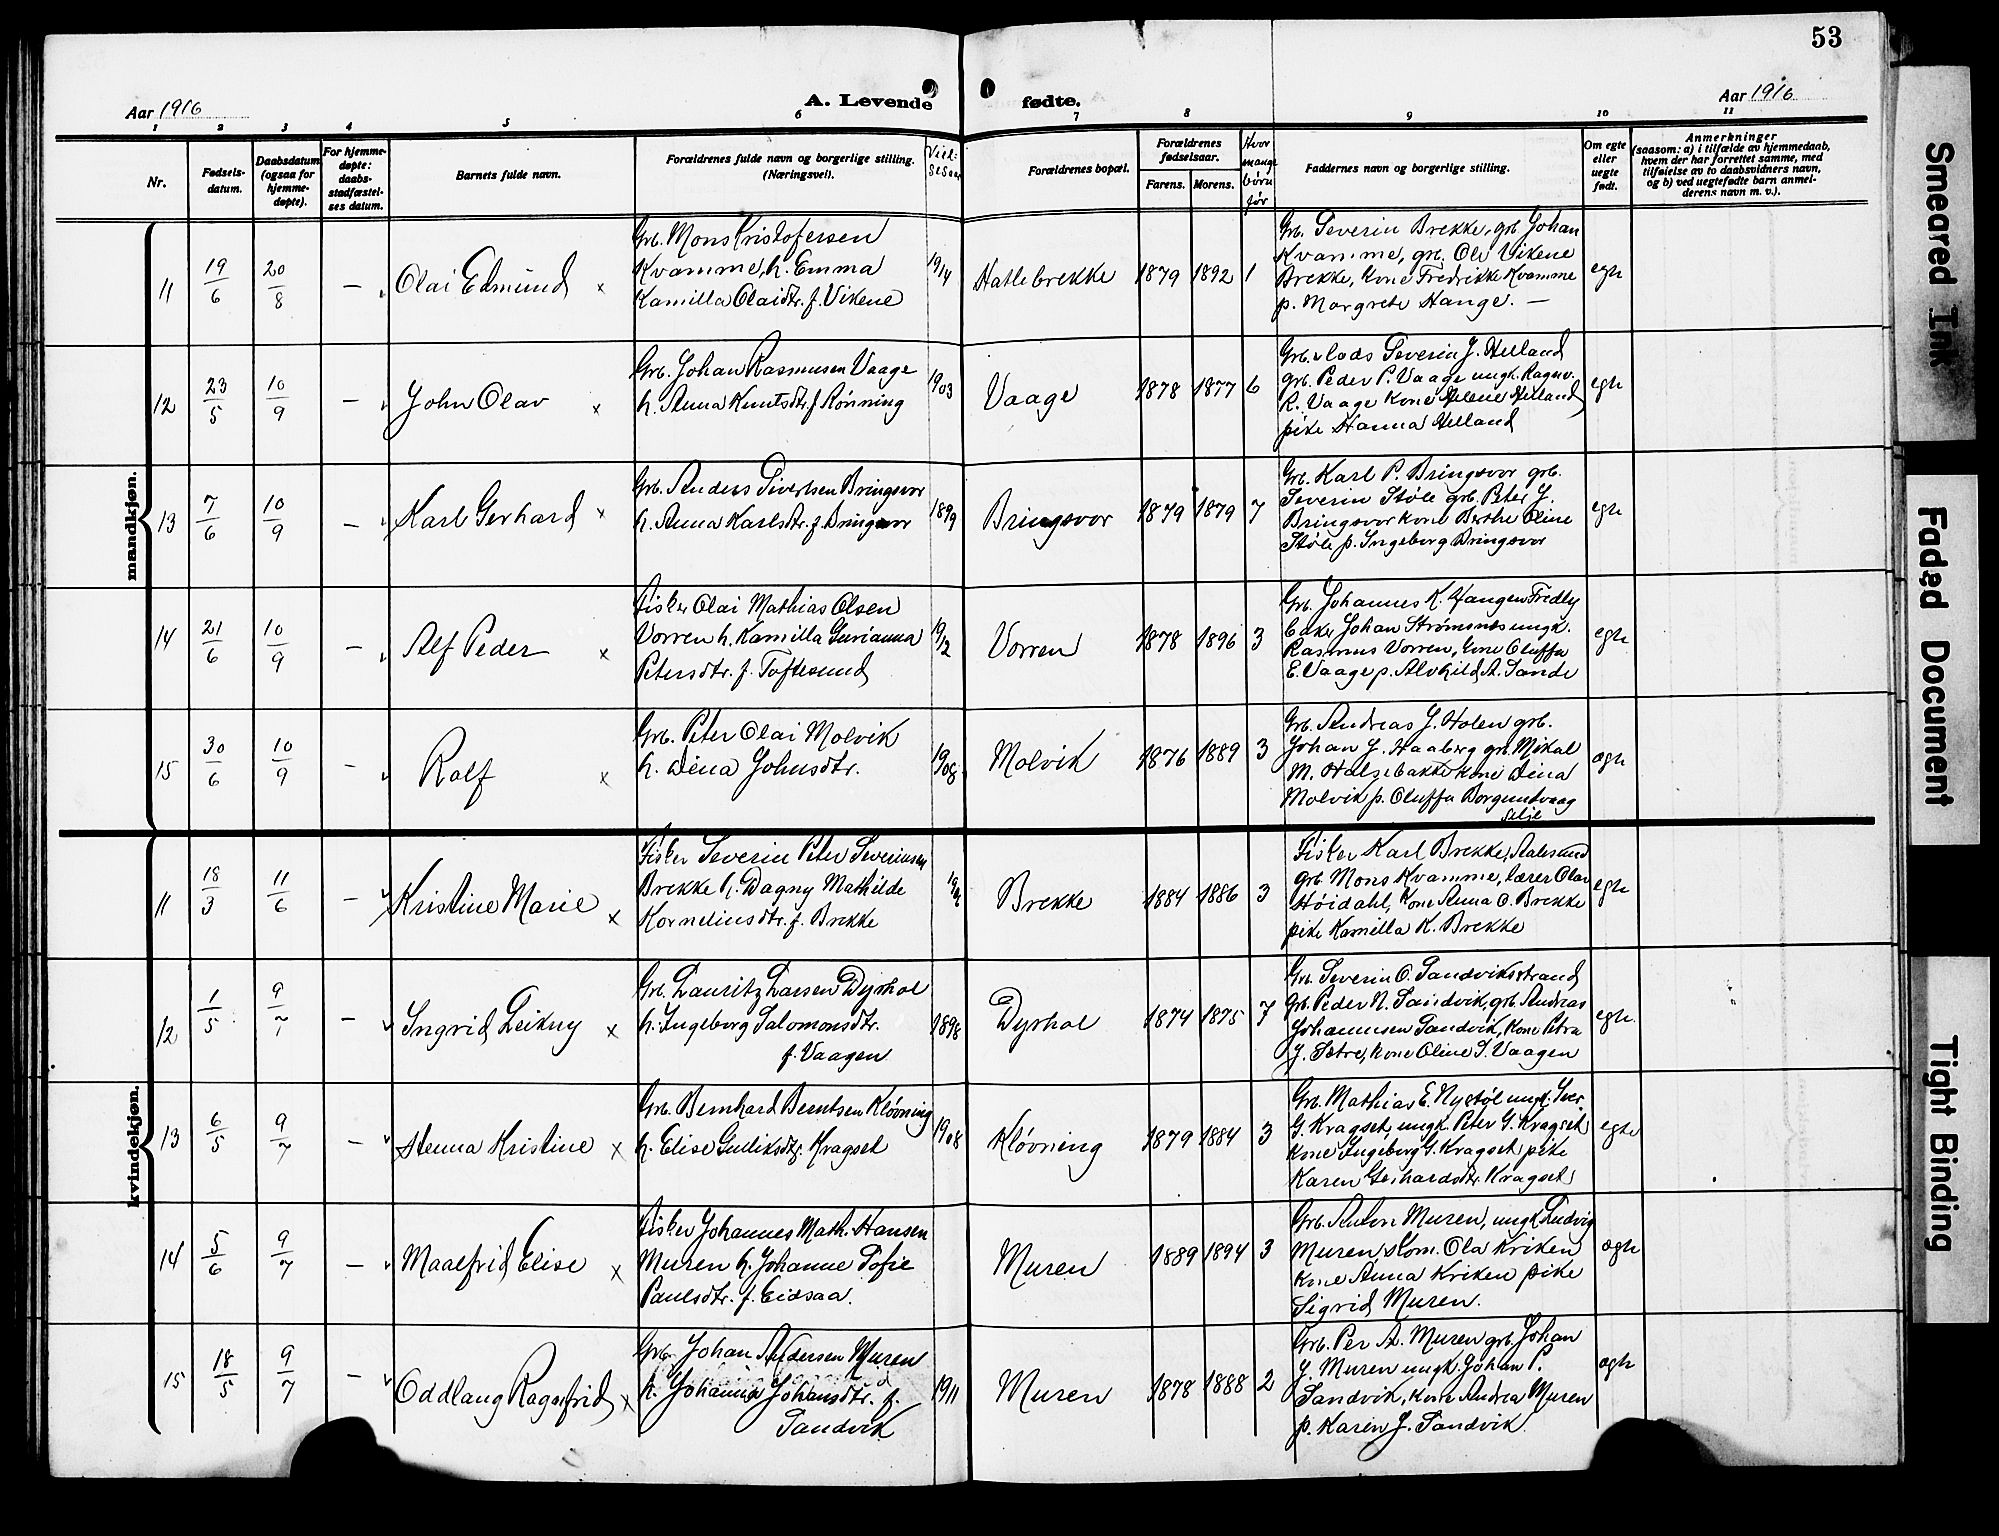 53
Aar 1916
A. Levende fødte.
Aar 1916
1 2 3 4 5 6 7 8 9 10 11
Nr.
Fødsels-
datum.
Daabsdatum
(ogsaa for
hjemme-
døpte).
For hjemme-
døpte:
daabs-
stadfæstel-
ses datum.
Barnets fulde navn.
Forældrenes fulde navn og borgerlige stilling.
(Næringsvei).
Viel-
sesaar
Forældrenes bopæl.
Forældrenes
fødselsaar.
Farens. Morens.
Hvor
mange
børn
før
Faddernes navn og borgerlige stilling.
Om egte
eller
uegte
født.
Anmerkninger
(saasom: a) i tilfælde av hjemmedaab,
hvem der har forrettet samme, med
tilføielse av to daabsvidners navn,
og b) ved uegtefødte barn anmel-
derens navn m. v.).
mandkjøn.
11 19/6 20/8 — Olai Edmund x
Grb. Mons Kristofersen
Kvamme, h. Emma
Kamilla Olaidtr. f. Vikene
1914 Hatlebrekke 1879 1892 1
Grb. Severin Brekke, grb Johan
Kvamme, gr. Ole Vikene
Brekke, kone Fredrikke Kvamme
p. Margrete Hange. —
egte
12 23/5 10/9 — John Olav x
Grb. Johan Rasmusen Vaage
h. Anna Knutsdtr. f Rønning
1903 Vaage 1878 1877 6
Grb. & lods Severin J. Helland
grb. Peder P. Vaage ungk. Ragnv.
R. Vaage kone Helene Helland
pike Hanna Helland
egte
13 7/6 10/9 — Karl Gerhard x
Grb. Anders Sivertsen Bringsvor
h. Anna Karlsdtr. f. Bringsvor
1899 Bringsvor 1879 1879 7
Grb. Karl P. Bringsvor grb.
Severin Støle grb. Peter J.
Bringsvor kone Berthe Oline
Støle p. Ingeborg Bringsvor
egte
14 21/6 10/9 — Alf Peder x
Fisker Olai Mathias Olsen
Vorren h. Kamilla Gurianna
Petersdtr. f. Toftesund
1912 Vorren 1878 1896 3
Grb. Johannes K. Hangen Fredly
baker Johan Strømsnes ungk.
Rasmus Vorren, kone Oluffa
E. Vaage p. Alvhild A. Sande
egte
15 30/6 10/9 — Ralf x
Grb. Peter Olai Molvik
h. Dina Johnsdtr.
1908 Molvik 1876 1889 3
Grb. Andreas J. Holen grb.
Johan J. Haaberg gr. Mikal
M. Halsebakke kone Dina
Molvik p. Oluffa Borgundvaag
Selje
egte
kvindekjøn.
11 18/3 11/6 — Kristine Marie x
Fisker Severin Peter Severinsen
Brekke h. Dagny Mathilde
Korneliusdtr. f. Brekke
Brekke 1884 1886 3
Fisker Karl Brekke, Aalesund
grb. Mons Kvamme, lærer Olav
Høidahl, kone Anna O. Brekke
pike Kamilla K. Brekke
egte
12 1/5 9/7 — Ingrid Leikny x
Grb. Lauritz Larsen Dyrhol
h. Ingeborg Salomonsdtr.
f. Vaagen
1898 Dyrhol 1874 1875 7
Grb. Severin O. Sandviksstrand
Grb. Peder N. Sandvik, grb. Andreas
Johannesen Sandvik, kone Petra
J. Sætre, kone Oline S. Vaagen
egte.
13 6/5 9/7 — Stenna Kristine x
Grb. Bernhard Berntsen Kløvning
h. Elise Gudiksdtr. Kragset
1908 Kløvning 1879 1884 3
Grb. Mathias E. Nystøl ungk. Iver
G. Kragset, ungk. Peter G. Kragset
kone Ingeborg G. Kragset pike
Karen Gerhardsdtr. Kragset
egte
14 5/6 9/7 — Maalfrid Elise x
Fisker Johannes Math. Hansen
Muren h. Johanne Sofie
Paulsdtr. f. Eidsaa.
Muren 1889 1894 3
Grb. Anton Muren, ungk. Ludvig
Muren, skom. Ola Kriken
kone Anna Kriken pike
Sigrid Muren.
egte
15 18/5 9/7 — Oddlaug Ragnfrid x
Grb. Johan Andersen Muren
h. Johanna Johansdtr. f.
Sandvik
1911 Muren 1878 1888 2
Grb. Per A. Muren grb. Johan
J. Muren ungk. Johan P.
Sandvik, kone Andrea Muren
p. Karen J. Sandvik
egte
Smeared Ink
Faded Document
Tight Binding